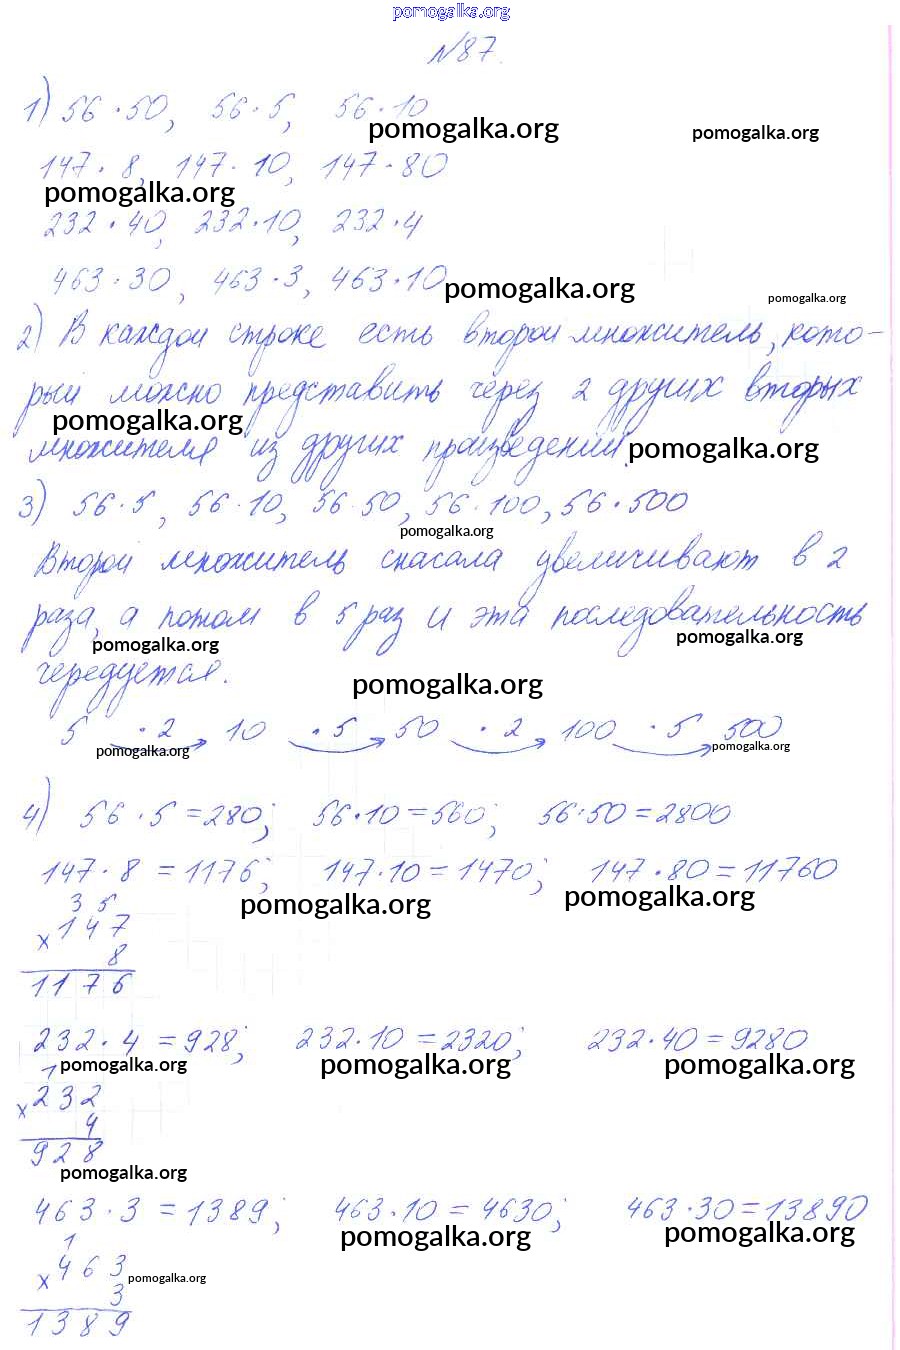 pomogalka.org
№87.
1) 56 · 50, 56 · 5, 56 · 10
pomogalka.org pomogalka.org
147 · 8, 147 · 10, 147 · 80
pomogalka.org
232 · 40, 232 · 10, 232 · 4
463 · 30, 463 · 3, 463 · 10
pomogalka.org pomogalka.org
2) В каждой строке есть второй множитель, кото-
рый можно представить через 2 других вторых
pomogalka.org
множителя из других произведений.
pomogalka.org
3) 56 · 5, 56 · 10, 56 · 50, 56 · 100, 56 · 500
pomogalka.org
Второй множитель сначала увеличивают в 2
раза, а потом в 5 раз и эта последовательность
pomogalka.org pomogalka.org
чередуется.
pomogalka.org
5 · 2 10 · 5 50 · 2 100 · 5 500
pomogalka.org pomogalka.org
4) 56 · 5 = 280; 56 · 10 = 560; 56 · 50 = 2800
147 · 8 = 1176; 147 · 10 = 1470; 147 · 80 = 11760
pomogalka.org pomogalka.org
3 5
x 147
8
1176
232 · 4 = 928; 232 · 10 = 2320; 232 · 40 = 9280
pomogalka.org pomogalka.org pomogalka.org
1
x 232
4
928
pomogalka.org
463 · 3 = 1389; 463 · 10 = 4630; 463 · 30 = 13890
pomogalka.org pomogalka.org
1
x 463
pomogalka.org
3
1389